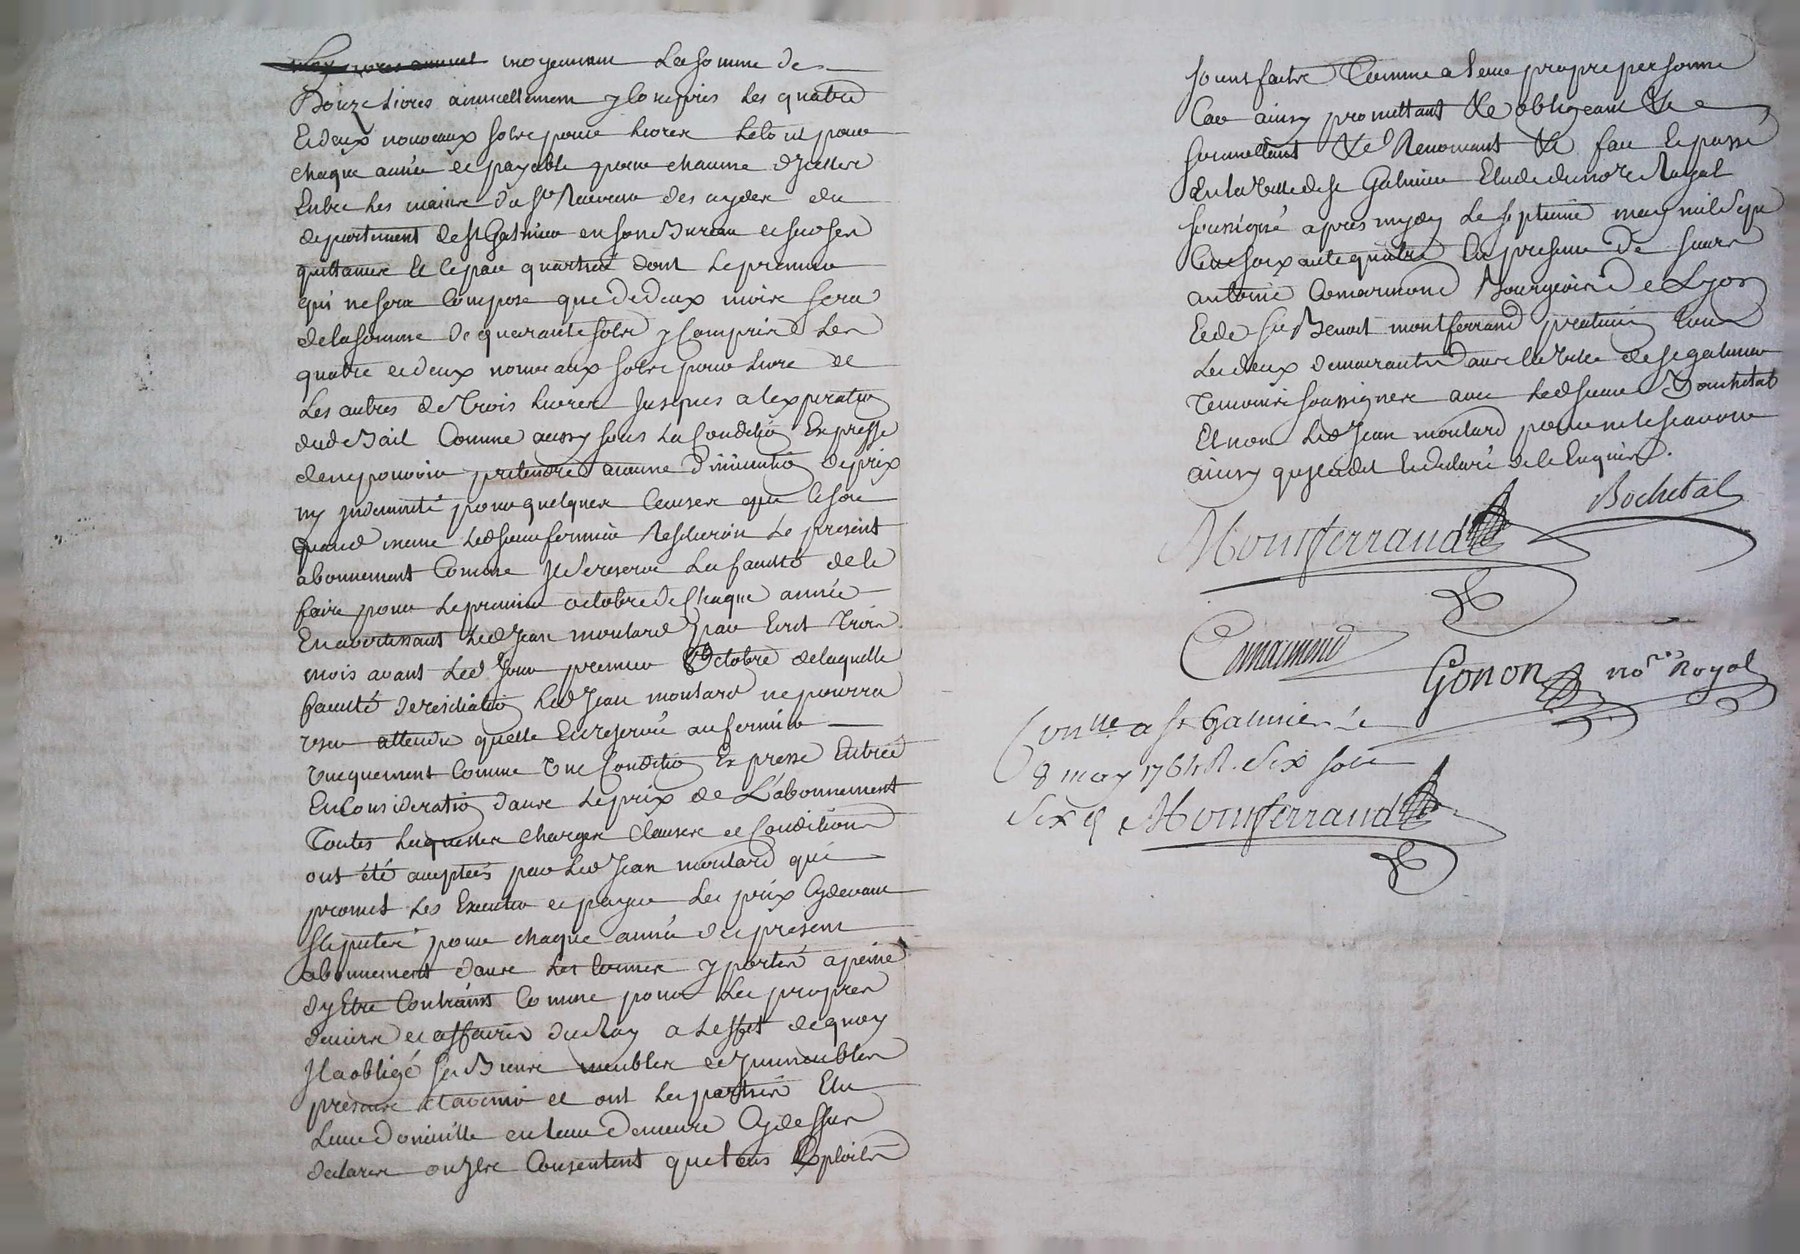 moyennant La somme de
Douze Livres annuellement y compris Les quatre
et deux nouveaux sols pour Livres Le tout pour
chaque année et payable pour chacune d'Icelles
Entre Les mains du Sr Receveur des aydes du
departement de St Galmier en son Bureau et sur ses
quittances Et ce par quartier dont Le premier
qui ne sera Composé que de deux mois sera
de la somme de quarante sols y Compris Les
quatre et deux nouveaux sols pour Livre et
Les autres de trois Livres Jusques a l'expiration
dud Bail Comme aussy sous La Condition Expresse
de ne pouvoir pretendre aucune diminution de prix
ny indemnité pour quelques Causes que ce soit
quand meme Led sieur fermier Resilieroit Le present
abonnement Comme Il se reserve La faculté de le
faire pour Le premier octobre de Chaque année
En avertissant Led Jean moulard par Ecrit Trois
mois avant Led Jour premier Octobre de laquelle
faculté de resiliation Led Jean moulard ne pourra
user attendu quelle Est reservée au fermier
uniquement Comme une Condition Expresse Entrée
En Consideration dans Le prix de L'abonnement
Toutes Lesquelles Charges Clauses et Conditions
ont été acceptées par Led Jean moulard qui
promet Les Executer et payer Les prix Cydevant
stipulés pour chaque année du present
abonnement dans Les termes y portés a peine
d'y Etre Contraint Comme pour Les propres
deniers et affaires du Roy a L'effet de quoy
Il a obligé ses Biens meubles et Immeubles
presents et avenir et ont Les parties Elu
Leur Domicille en Leur Demeure Cydessus
declarés ou Ils Consentent que tous Exploits
soient faits Comme a Leur propre personne
Car ainsy promettant &c obligeant &c
soumettant &c Renoncant &c fait et passé
en la ville de St Galmier Etude du nore Royal
soussigné apres mydy Le septieme may mil sept
Cent soixante quatre En presence De sieurs
antoine Comarmond Bourgeois de Lyon
Et de Sr Benoit montferrand praticien Tous
Les deux demeurants dans la ville de St galmier
Temoins soussignés avec Led sieur Bouchetal
Et non Led Jean moulard pour ne le scavoir
ainsy qu'il a dit Et declaré de ce Enquis.
Bochetal
Montferrand
Comarmond
Gonon nore Royal
Conlle a St Galmier Le
8 may 1764 R. Six sols
Six d Montferrand